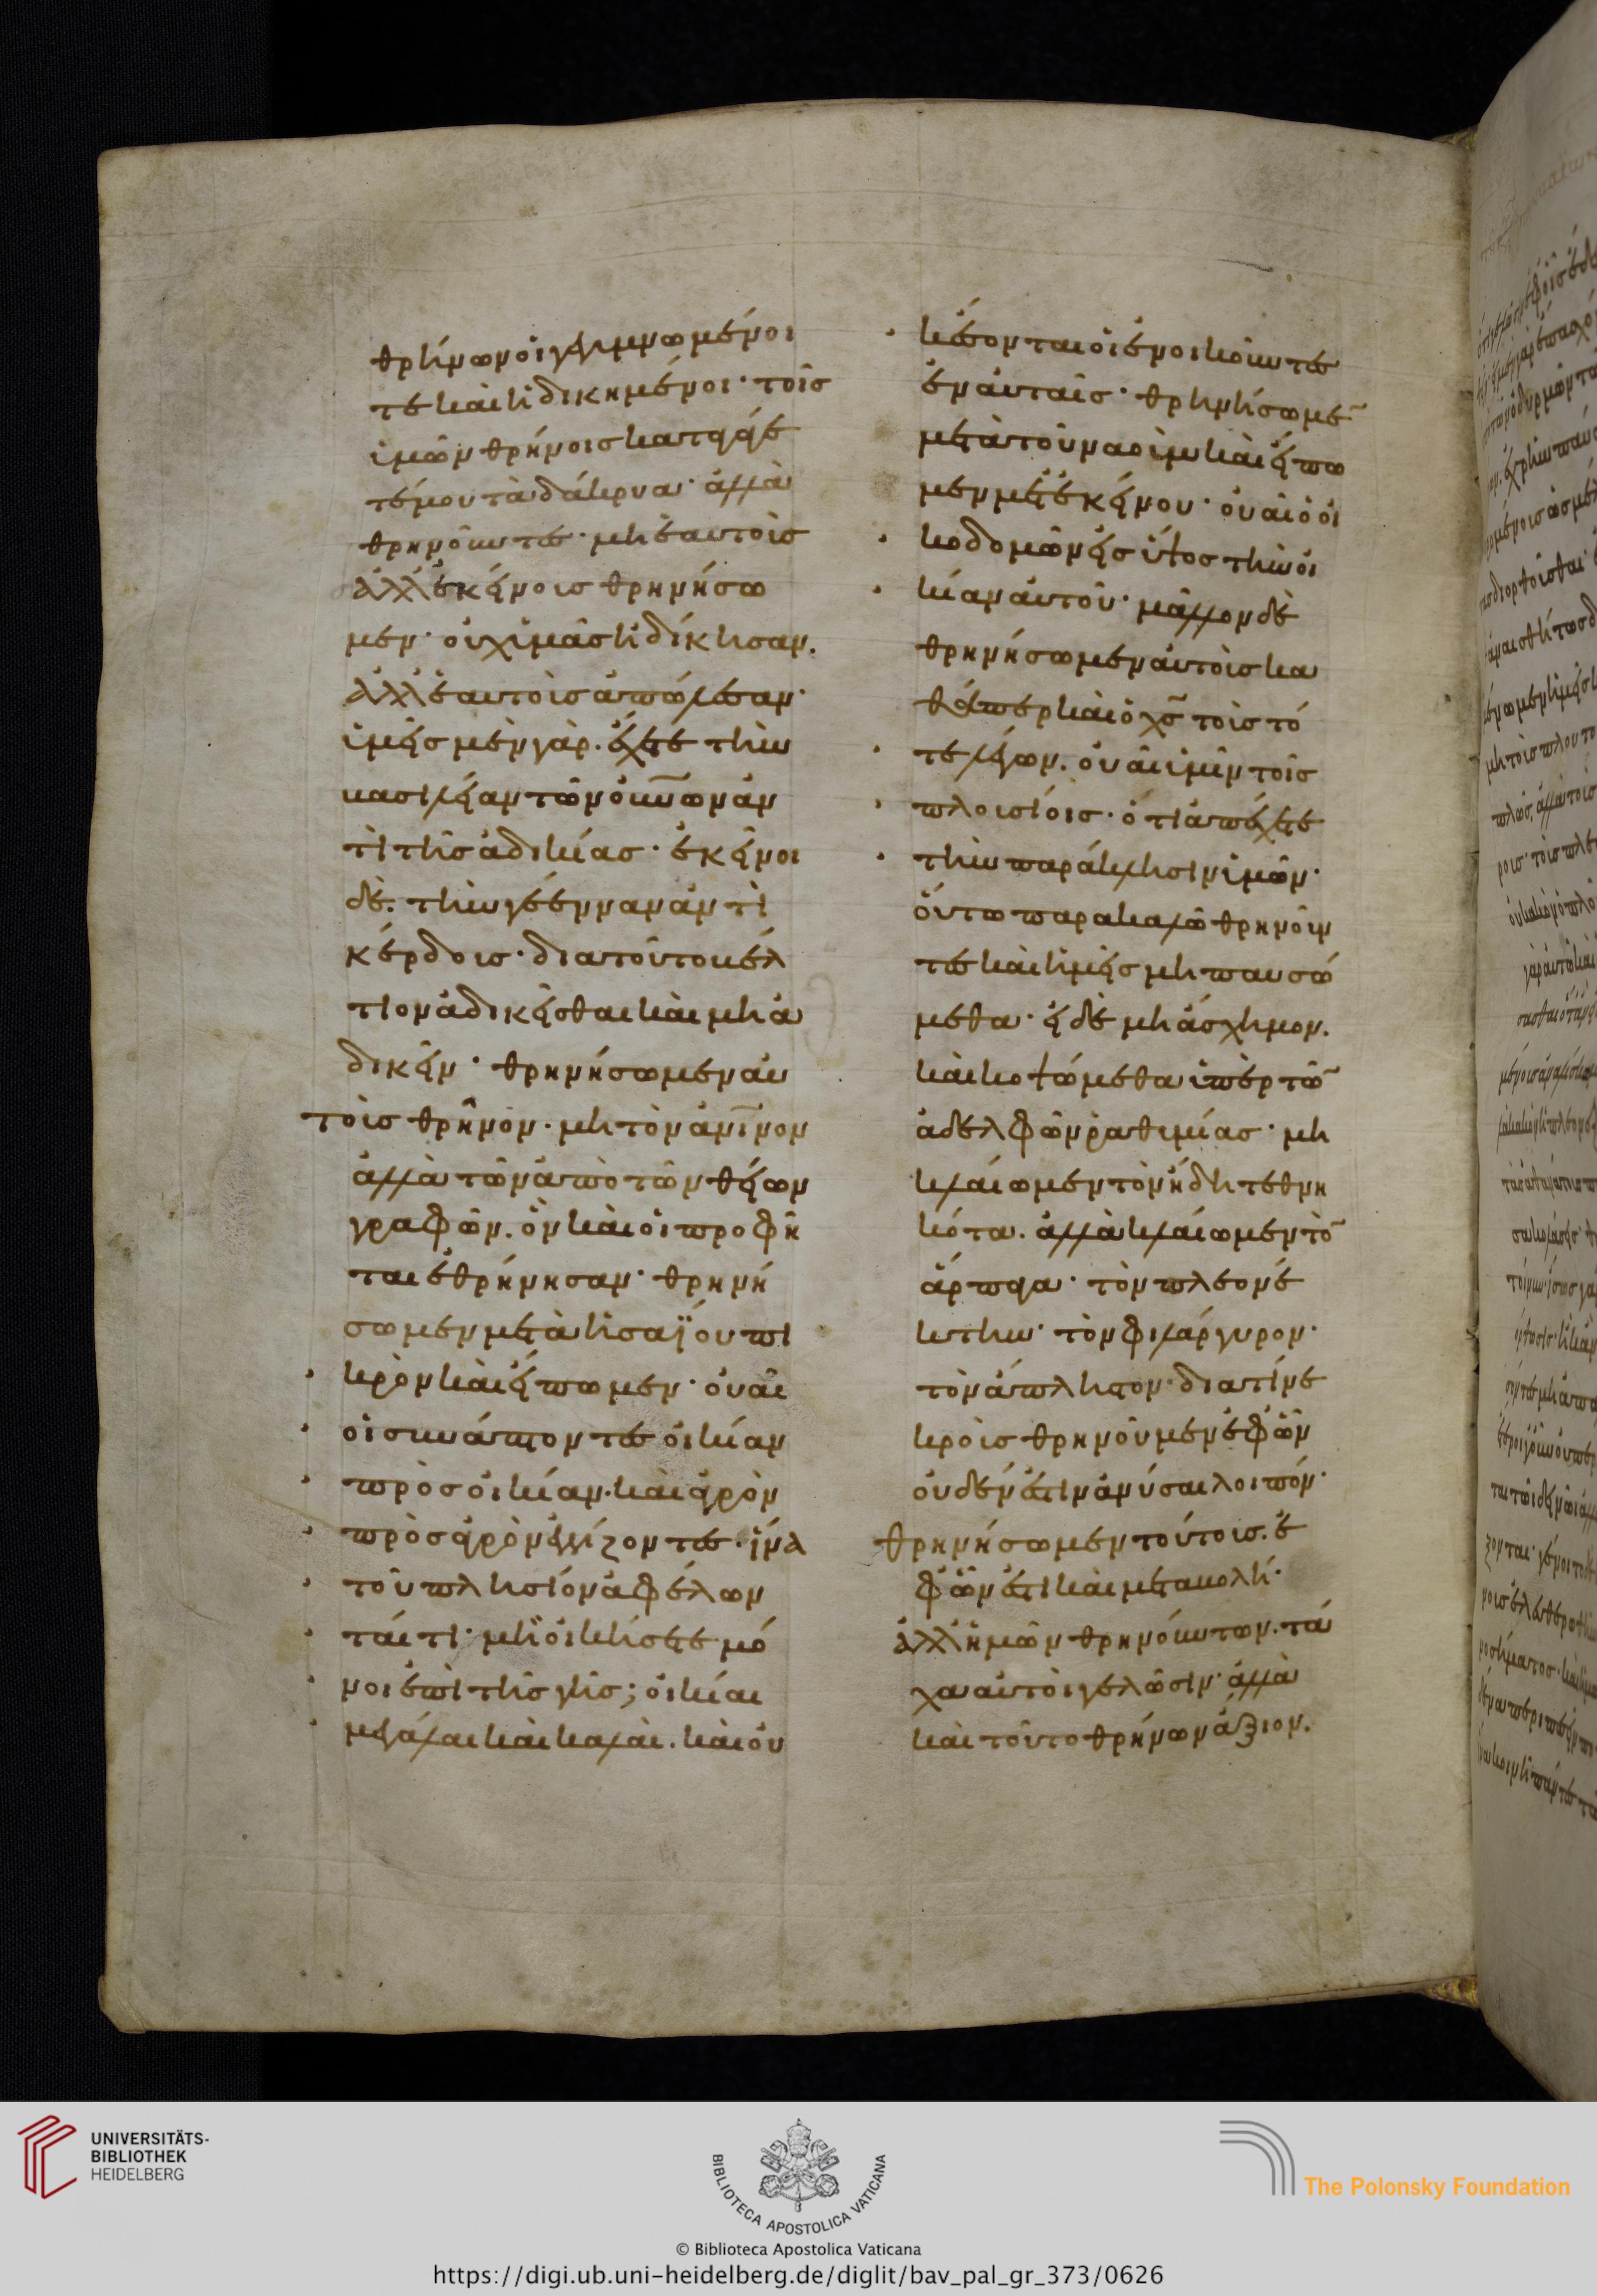 θρήνων οἱ γεγυμνωμένοι
τὲ καὶ ἠδικημένοι· τοῖς
ὑμῶν θρήνοις κατηγάγε
τέ μου τὰ δάκρυα· ἀλλὰ
θρηνοῦντες· μὴ ἑαυτοὺς
ἀλλ' ἐκείνους θρηνήσω
μεν· οὐχ ὑμᾶς ἠδίκησαν.
ἀλλ' ἑαυτοὺς ἀπώλεσαν·
ὑμεῖς μὲν γὰρ. ἔχετε τὴν
βασιλείαν τῶν οὐνῶν ἀν
τὶ τῆς ἀδικίας· ἐκεῖνοι
δὲ. τὴν γέενναν ἀντὶ
κέρδους· διατοῦτο βέλ
τιον ἀδικεῖσθαι καὶ μὴ ἀ
δικεῖν· θρηνήσωμεν αὐ
τοὺς θρῆνον· μὴ τὸν ἀνινον
ἀλλὰ τὸν ἀπὸ τῶν θείων
γραφῶν. ὃν καὶ οἱ προφῆ
ται ἐθρήνησαν· θρηνή
σωμεν μετὰ ἡσαΐου πι
κρὸν καὶ εἴπωμεν· οὐαὶ
οἱ συνάπτοντες οἰκίαν
πρὸς οἰκίαν· καὶ ἀγρὸν
πρὸς ἀγρὸν ἐγγίζοντες· ἵνα
τοῦ πλησίον ἀφέλων
ταί τι· μὴ οἰκήσετε μό
νοι ἐπὶ τῆς γῆς; οἰκίαι
μεγάλαι καὶ καλαὶ. καὶ οὐ
κ ἔσονται οἱ ἐνοικοῦντες
ἐν αὐταῖς· θρηνήσωμε̄
μετὰ τοῦ ναοὺμ καὶ εἴπω
μεν μετ' ἐκείνου· οὐαὶ ὁ οἰ
κοδομῶν εἰς ὕψος τὴν οἰ
κίαν αὐτοῦ· μᾶλλον δὲ
θρηνήσωμεν αὐτοὺς κα
θάπερ καὶ ὁ χς̄ τοὺς τό
τε λέγων. οὐαὶ ὑμῖν τοῖς
πλουσίοις· ὅτι ἀπέχετε
τὴν παράκλησιν ὑμῶν·
οὕτω παρακαλῶ θρηνοῦν
τες καὶ ἡμεῖς μὴ παυσώ
μεθα· εἰ δὲ μὴ ἄσχημον.
καὶ κοψώμεθα ὑπὲρ τῶ̄
ἀδελφῶν ῥαθυμίας· μὴ
κλαίωμεν τὸν ἤδη τεθνη
κότα. ἀλλὰ κλαίωμεν τὸ̄
ἅρπαγα· τὸν πλεονέ
κτην· τὸν φιλάργυρον·
τὸν ἄπληστον· διατί νε
κροὺς θρηνοῦμεν ἐφ' ὧν
οὐδέν ἐστιν ἀνύσαι λοιπόν·
θρηνήσωμεν τούτους. ἐ
φ' ὧν ἐστι καὶ μεταβολή·
ἀλλ' ἡμῶν θρηνούντων. τά
χα αὐτοὶ γελῶσιν· ἀλλὰ
καὶ τοῦτο θρήνων ἄξιον.
UNIVERSITÄTS-
BIBLIOTHEK
HEIDELBERG
BIBLIOTECA APOSTOLICA VATICANA
The Polonsky Foundation
© Biblioteca Apostolica Vaticana
https://digi.ub.uni-heidelberg.de/diglit/bav_pal_gr_373/0626